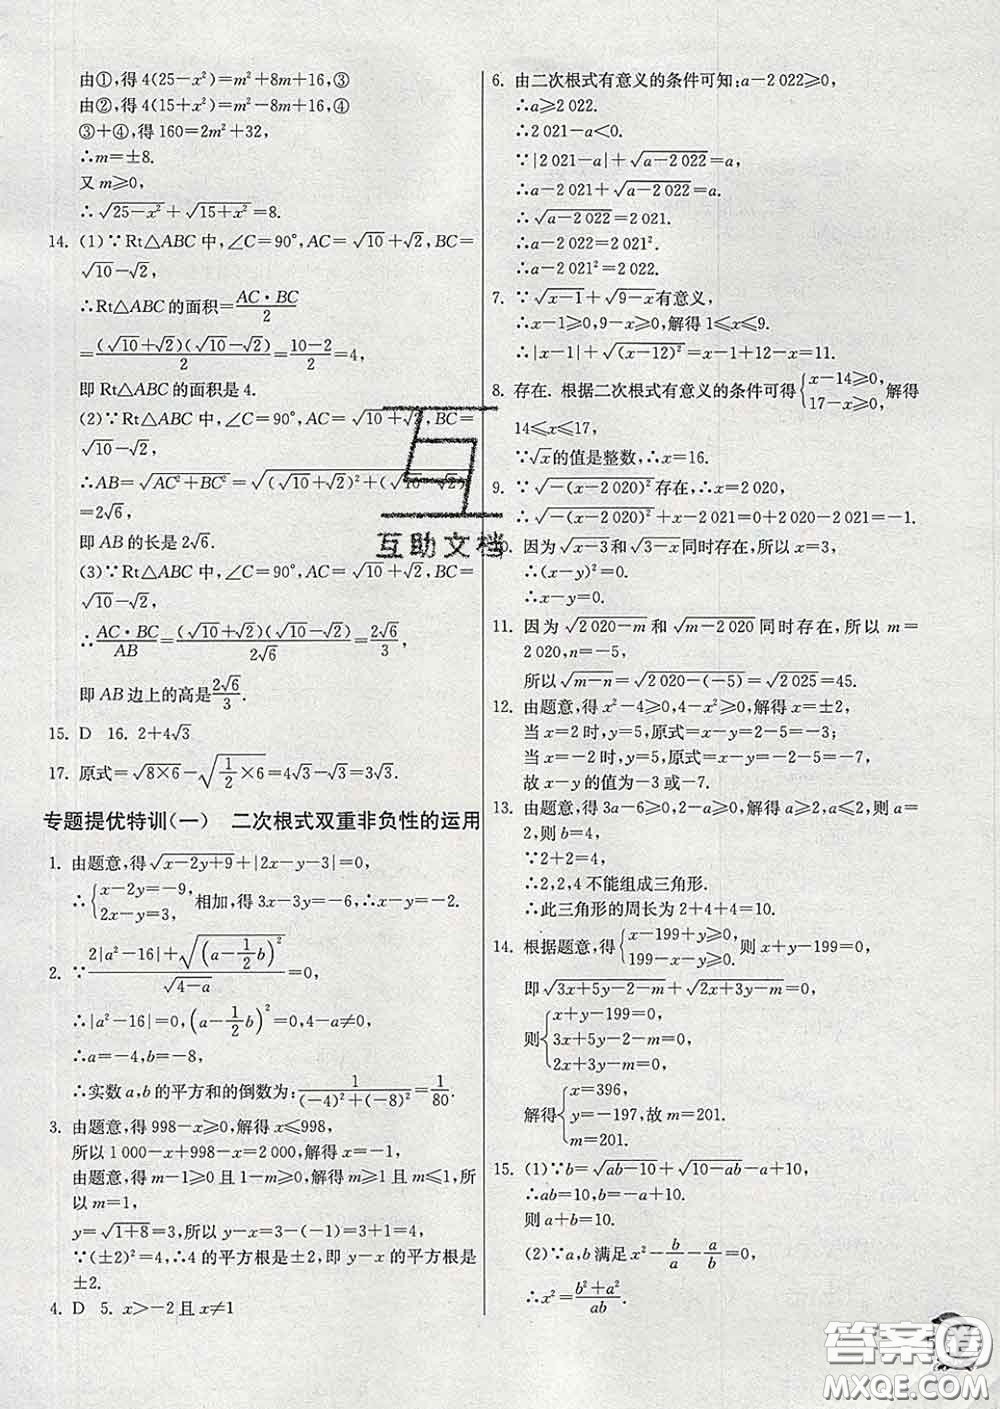 由①,得4(25－x²)＝m²＋8m＋16,③
由②,得4(15＋x²)＝m²－8m＋16,④
③＋④,得160＝2m²＋32,
∴m＝±8.
又m≥0,
∴√(25－x²)＋√(15＋x²)＝8.
14. (1)∵Rt△ABC中,∠C＝90°,AC＝√10＋√2,BC＝
√10－√2,
∴Rt△ABC的面积＝(AC·BC)/2
＝(√10＋√2)(√10－√2)/2＝(10－2)/2＝4,
即Rt△ABC的面积是4.
(2)∵Rt△ABC中,∠C＝90°,AC＝√10＋√2,BC＝
√10－√2,
∴AB＝√(AC²＋BC²)＝√((√10＋√2)²＋(√10－√2)²)
＝2√6,
即AB的长是2√6.
(3)∵Rt△ABC中,∠C＝90°,AC＝√10＋√2,BC＝
√10－√2,
∴(AC·BC)/AB＝(√10＋√2)(√10－√2)/(2√6)＝2√6/3,
即AB边上的高是2√6/3.
15. D 16. 2＋4√3
17. 原式＝√(8×6)－√(1/2×6)＝4√3－√3＝3√3.
专题提优特训(一) 二次根式双重非负性的运用
1. 由题意,得√(x－2y＋9)＋|2x－y－3|＝0,
∴{x－2y＝－9, 2x－y＝3, 相加,得3x－3y＝－6,∴x－y＝－2.
2. ∵(2|a²－16|＋√((a－1/2b)²))/√(4－a)＝0,
∴|a²－16|＝0,(a－1/2b)²＝0,4－a≠0,
∴a＝－4,b＝－8,
∴实数a,b的平方和的倒数为:1/((－4)²＋(－8)²)＝1/80.
3. 由题意,得998－x≥0,解得x≤998,
所以1 000－x＋998－x＝2 000,解得x＝－1,
由题意,得m－1≥0且1－m≥0,解得m≥1且m≤1,所
以m＝1,
y＝√(1＋8)＝3,所以y－x＝3－(－1)＝3＋1＝4,
∵(±2)²＝4,∴4的平方根是±2,即y－x的平方根是
±2.
4. D 5. x＞－2且x≠1
6. 由二次根式有意义的条件可知:a－2 022≥0,
∴a≥2 022.
∴2 021－a＜0.
∵|2 021－a|＋√(a－2 022)＝a,
∴a－2 021＋√(a－2 022)＝a.
∴√(a－2 022)＝2 021.
∴a－2 022＝2 021².
∴a－2 021²＝2 022.
7. ∵√(x－1)＋√(9－x)有意义,
∴x－1≥0,9－x≥0,解得1≤x≤9.
∴|x－1|＋√((x－12)²)＝x－1＋12－x＝11.
8. 存在. 根据二次根式有意义的条件可得{x－14≥0, 17－x≥0, 解得
14≤x≤17,
∵√x的值是整数,∴x＝16.
9. ∵√(－(x－2 020)²)存在,∴x＝2 020,
∴√(－(x－2 020)²)＋x－2 021＝0＋2 020－2 021＝－1.
0. 因为√(x－3)和√(3－x)同时存在,所以x＝3,
∴(x－y)²＝0.
∴x－y＝0.
11. 因为√(2 020－m)和√(m－2 020)同时存在,所以m＝
2 020,n＝－5,
所以√(m－n)＝√(2 020－(－5))＝√2 025＝45.
12. 由题意,得x²－4≥0,4－x²≥0,解得x＝±2,
当x＝2时,y＝5,原式＝x－y＝2－5＝－3;
当x＝－2时,y＝5,原式＝x－y＝－2－5＝－7,
故x－y的值为－3或－7.
13. 由题意,得3a－6≥0,2－a≥0,解得a≥2,a≤2,则a＝
2,则b＝4,
∵2＋2＝4,
∴2,2,4不能组成三角形.
∴此三角形的周长为2＋4＋4＝10.
14. 根据题意,得{x－199＋y≥0, 199－x－y≥0, 则x＋y－199＝0,
即√(3x＋5y－2－m)＋√(2x＋3y－m)＝0,
则{x＋y－199＝0, 3x＋5y－2－m＝0, 2x＋3y－m＝0,
解得{x＝396, y＝－197, m＝201. 故m＝201.
15. (1)∵b＝√(ab－10)＋√(10－ab)－a＋10,
∴ab＝10,b＝－a＋10.
则a＋b＝10.
(2)∵a,b满足x²－b/a－a/b＝0,
∴x²＝(b²＋a²)/ab.
互助文档
答案圈
MXQE.COM